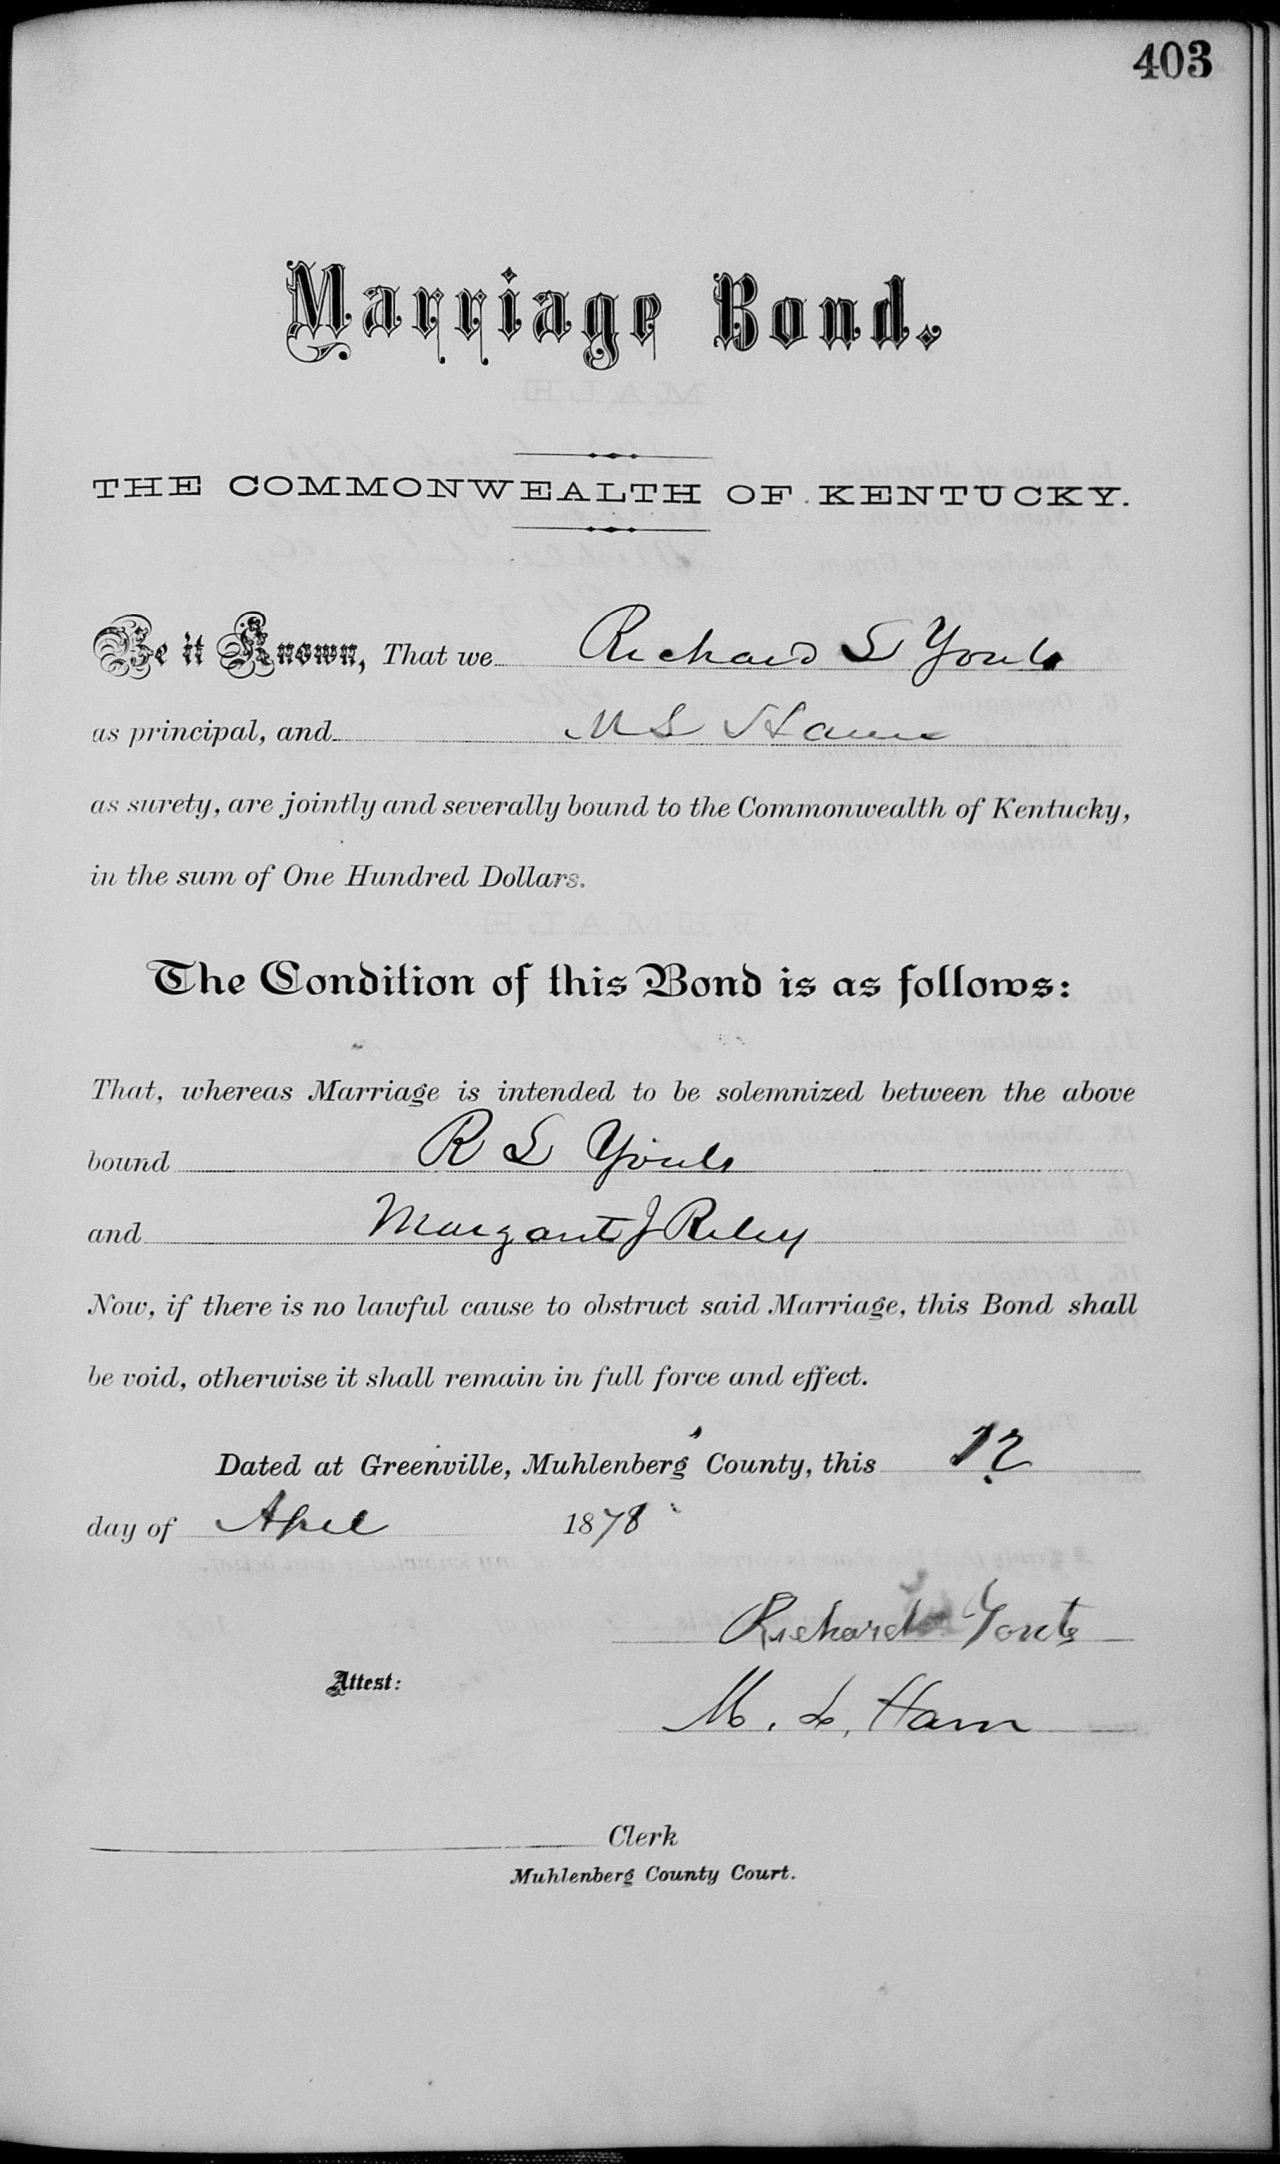 403
Marriage Bond.
THE COMMONWEALTH OF KENTUCKY.
Be it Known, That we Richard L Youts
as principal, and M L Ham
as surety, are jointly and severally bound to the Commonwealth of Kentucky,
in the sum of One Hundred Dollars.
The Condition of this Bond is as follows:
That, whereas Marriage is intended to be solemnized between the above
bound R L Youts
and Margaret J Riley
Now, if there is no lawful cause to obstruct said Marriage, this Bond shall
be void, otherwise it shall remain in full force and effect.
Dated at Greenville, Muhlenberg County, this 12
day of April 1878
Richard Youts
Attest:
M. L. Ham
Clerk
Muhlenberg County Court.